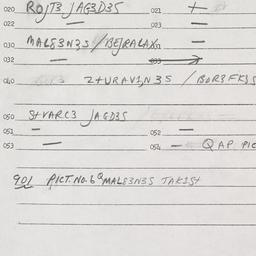 020 ROJT3 JAG3D35 021 +
022 — 023 —
030 MAL83N3S / BEJRALAX 031 —
032 — 033
040 Z+URAV1N3S /
050 S+VARC3 JAGD35
051 — 052 —
053 — 054 — QAP PIC
901 PICT.NO.6 MAL83N3S TAK1S+